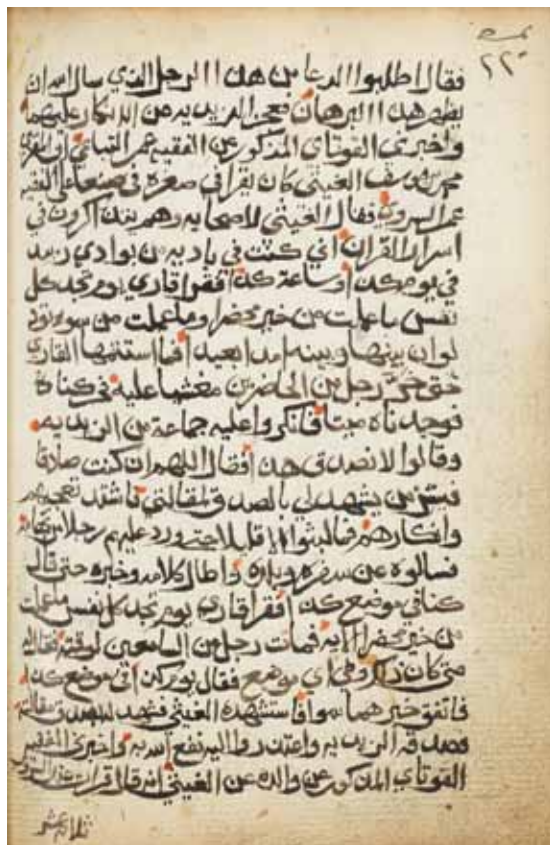 ٢٢٠
فقال اطلبوا الدعا من هذا الرجل الذي سال الله ان
يظهر هذا البرهان فعجز الزيديه عن الانكار عليهما
واخبرني القوتاي المذكور عن الفقيه عمر
محمد بن يوسف الغيثي كان يقرا في صغره في صنعا على الفقيه
عمر فقال الغيثي لاصحابه وهم يتذاكرون في
اسرار القران اني كنت في باديه من بوادي
في يوم كذا وساعة كذا فقرا قاري يوم تجد كل
نفس ما عملت من خير محضرا وما عملت من سوء تود
لو ان بينها وبينه امدا بعيدا فما استتمها القاري
حتى خر رجل من الحاضرين مغشيا عليه فحركناه
فوجدناه ميتا فانكروا عليه جماعة من الزيديه
وقالوا لا نصدق هذا فقال اللهم ان كنت صادقا
فيسر من يشهد لي بالصدق لمقالتي فاشتد تعجبهم
وانكارهم فما لبثوا الا قليلا حتى ورد عليهم رجل من تهامه
فسالوه عن سفره وبلاده واطال كلامه وخبره حتى قال
كنا في موضع كذا فقرا قاري يوم تجد كل نفس ما عملت
من خير محضرا الايه فمات رجل من السامعين لوقته فقال له
متى كان ذلك وفي اي موضع فقال يوم كذا في موضع كذا
فاتفق خبرهما سوا فاستشهده الغيثي فشهد له بصدق مقالته
فصدقه الزيديه واعتذروا اليه نفع الله به واخبرني الفقيه
القوتاي المذكور عن والده عن الغيثي انه قال قرات
ثلاثة عشر